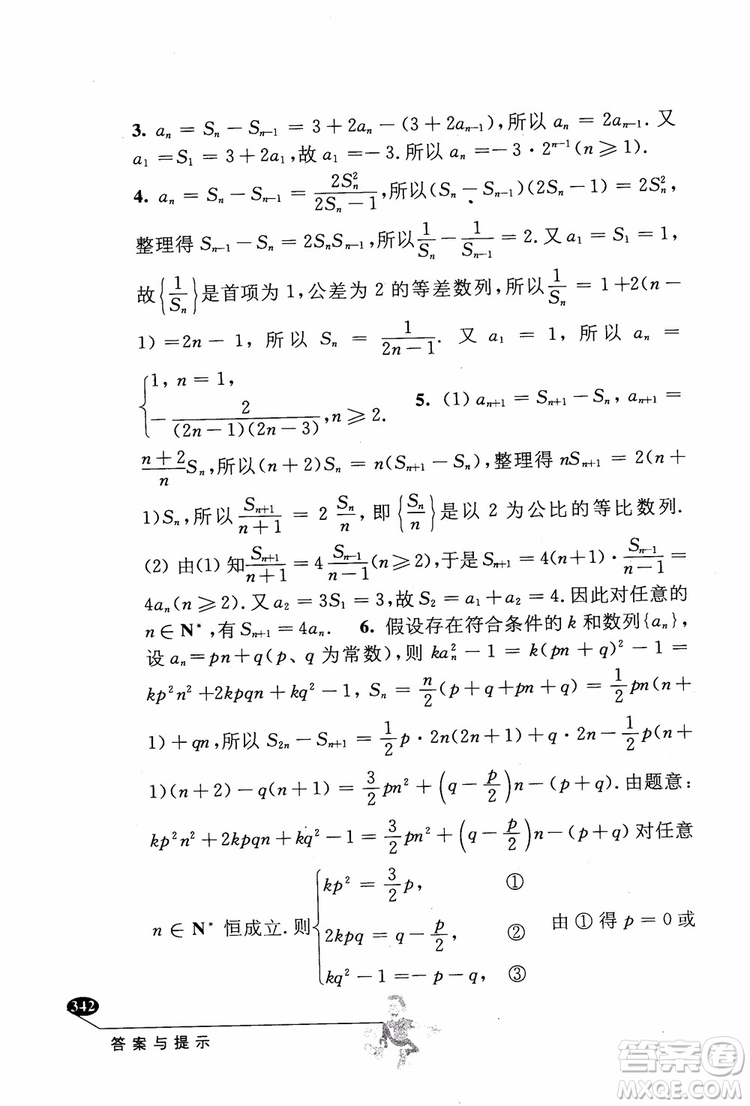 3. aₙ = Sₙ − Sₙ₋₁ = 3 + 2aₙ − (3 + 2aₙ₋₁),所以 aₙ = 2aₙ₋₁. 又
a₁ = S₁ = 3 + 2a₁,故 a₁ = − 3. 所以 aₙ = − 3 · 2ⁿ⁻¹(n ⩾ 1).
4. aₙ = Sₙ − Sₙ₋₁ = 2Sₙ²/(2Sₙ − 1),所以(Sₙ − Sₙ₋₁)(2Sₙ − 1) = 2Sₙ²,
整理得 Sₙ₋₁ − Sₙ = 2SₙSₙ₋₁,所以 1/Sₙ − 1/Sₙ₋₁ = 2. 又 a₁ = S₁ = 1,
故{1/Sₙ}是首项为 1,公差为 2 的等差数列,所以 1/Sₙ = 1 + 2(n −
1) = 2n − 1, 所以 Sₙ = 1/(2n − 1). 又 a₁ = 1, 所以 aₙ =
{1, n = 1,
− 2/((2n − 1)(2n − 3)), n ⩾ 2. 5. (1) aₙ₊₁ = Sₙ₊₁ − Sₙ, aₙ₊₁ =
(n + 2)/n Sₙ,所以(n + 2)Sₙ = n(Sₙ₊₁ − Sₙ),整理得 nSₙ₊₁ = 2(n +
1)Sₙ,所以 Sₙ₊₁/(n + 1) = 2 Sₙ/n, 即{Sₙ/n}是以 2 为公比的等比数列.
(2) 由(1) 知 Sₙ₊₁/(n + 1) = 4 Sₙ₋₁/(n − 1)(n ⩾ 2),于是 Sₙ₊₁ = 4(n + 1) · Sₙ₋₁/(n − 1) =
4aₙ(n ⩾ 2). 又 a₂ = 3S₁ = 3,故 S₂ = a₁ + a₂ = 4. 因此对任意的
n ∈ N*,有 Sₙ₊₁ = 4aₙ. 6. 假设存在符合条件的 k 和数列{aₙ},
设 aₙ = pn + q(p、q 为常数),则 kaₙ² − 1 = k(pn + q)² − 1 =
kp²n² + 2kpqn + kq² − 1, Sₙ = n/2(p + q + pn + q) = 1/2 pn(n +
1) + qn,所以 S₂ₙ − Sₙ₊₁ = 1/2 p · 2n(2n + 1) + q · 2n − 1/2 p(n +
1)(n + 2) − q(n + 1) = 3/2 pn² + (q − p/2)n − (p + q). 由题意:
kp²n² + 2kpqn + kq² − 1 = 3/2 pn² + (q − p/2)n − (p + q) 对任意
n ∈ N* 恒成立. 则{kp² = 3/2 p, ①
2kpq = q − p/2, ②
kq² − 1 = − p − q, ③
由①得 p = 0 或
342
答案与提示
答案卷
MXQE.COM